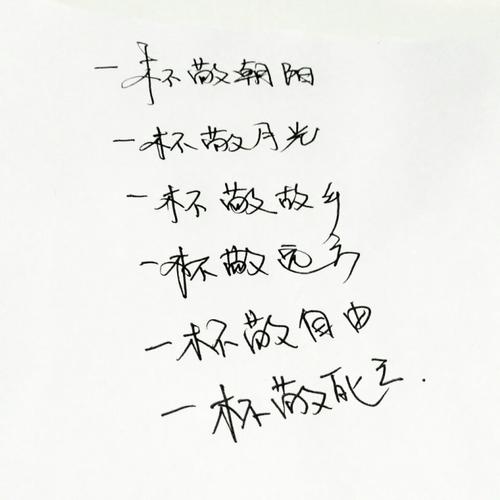 一杯敬朝阳
一杯敬月光
一杯敬故乡
一杯敬远方
一杯敬自由
一杯敬死亡.